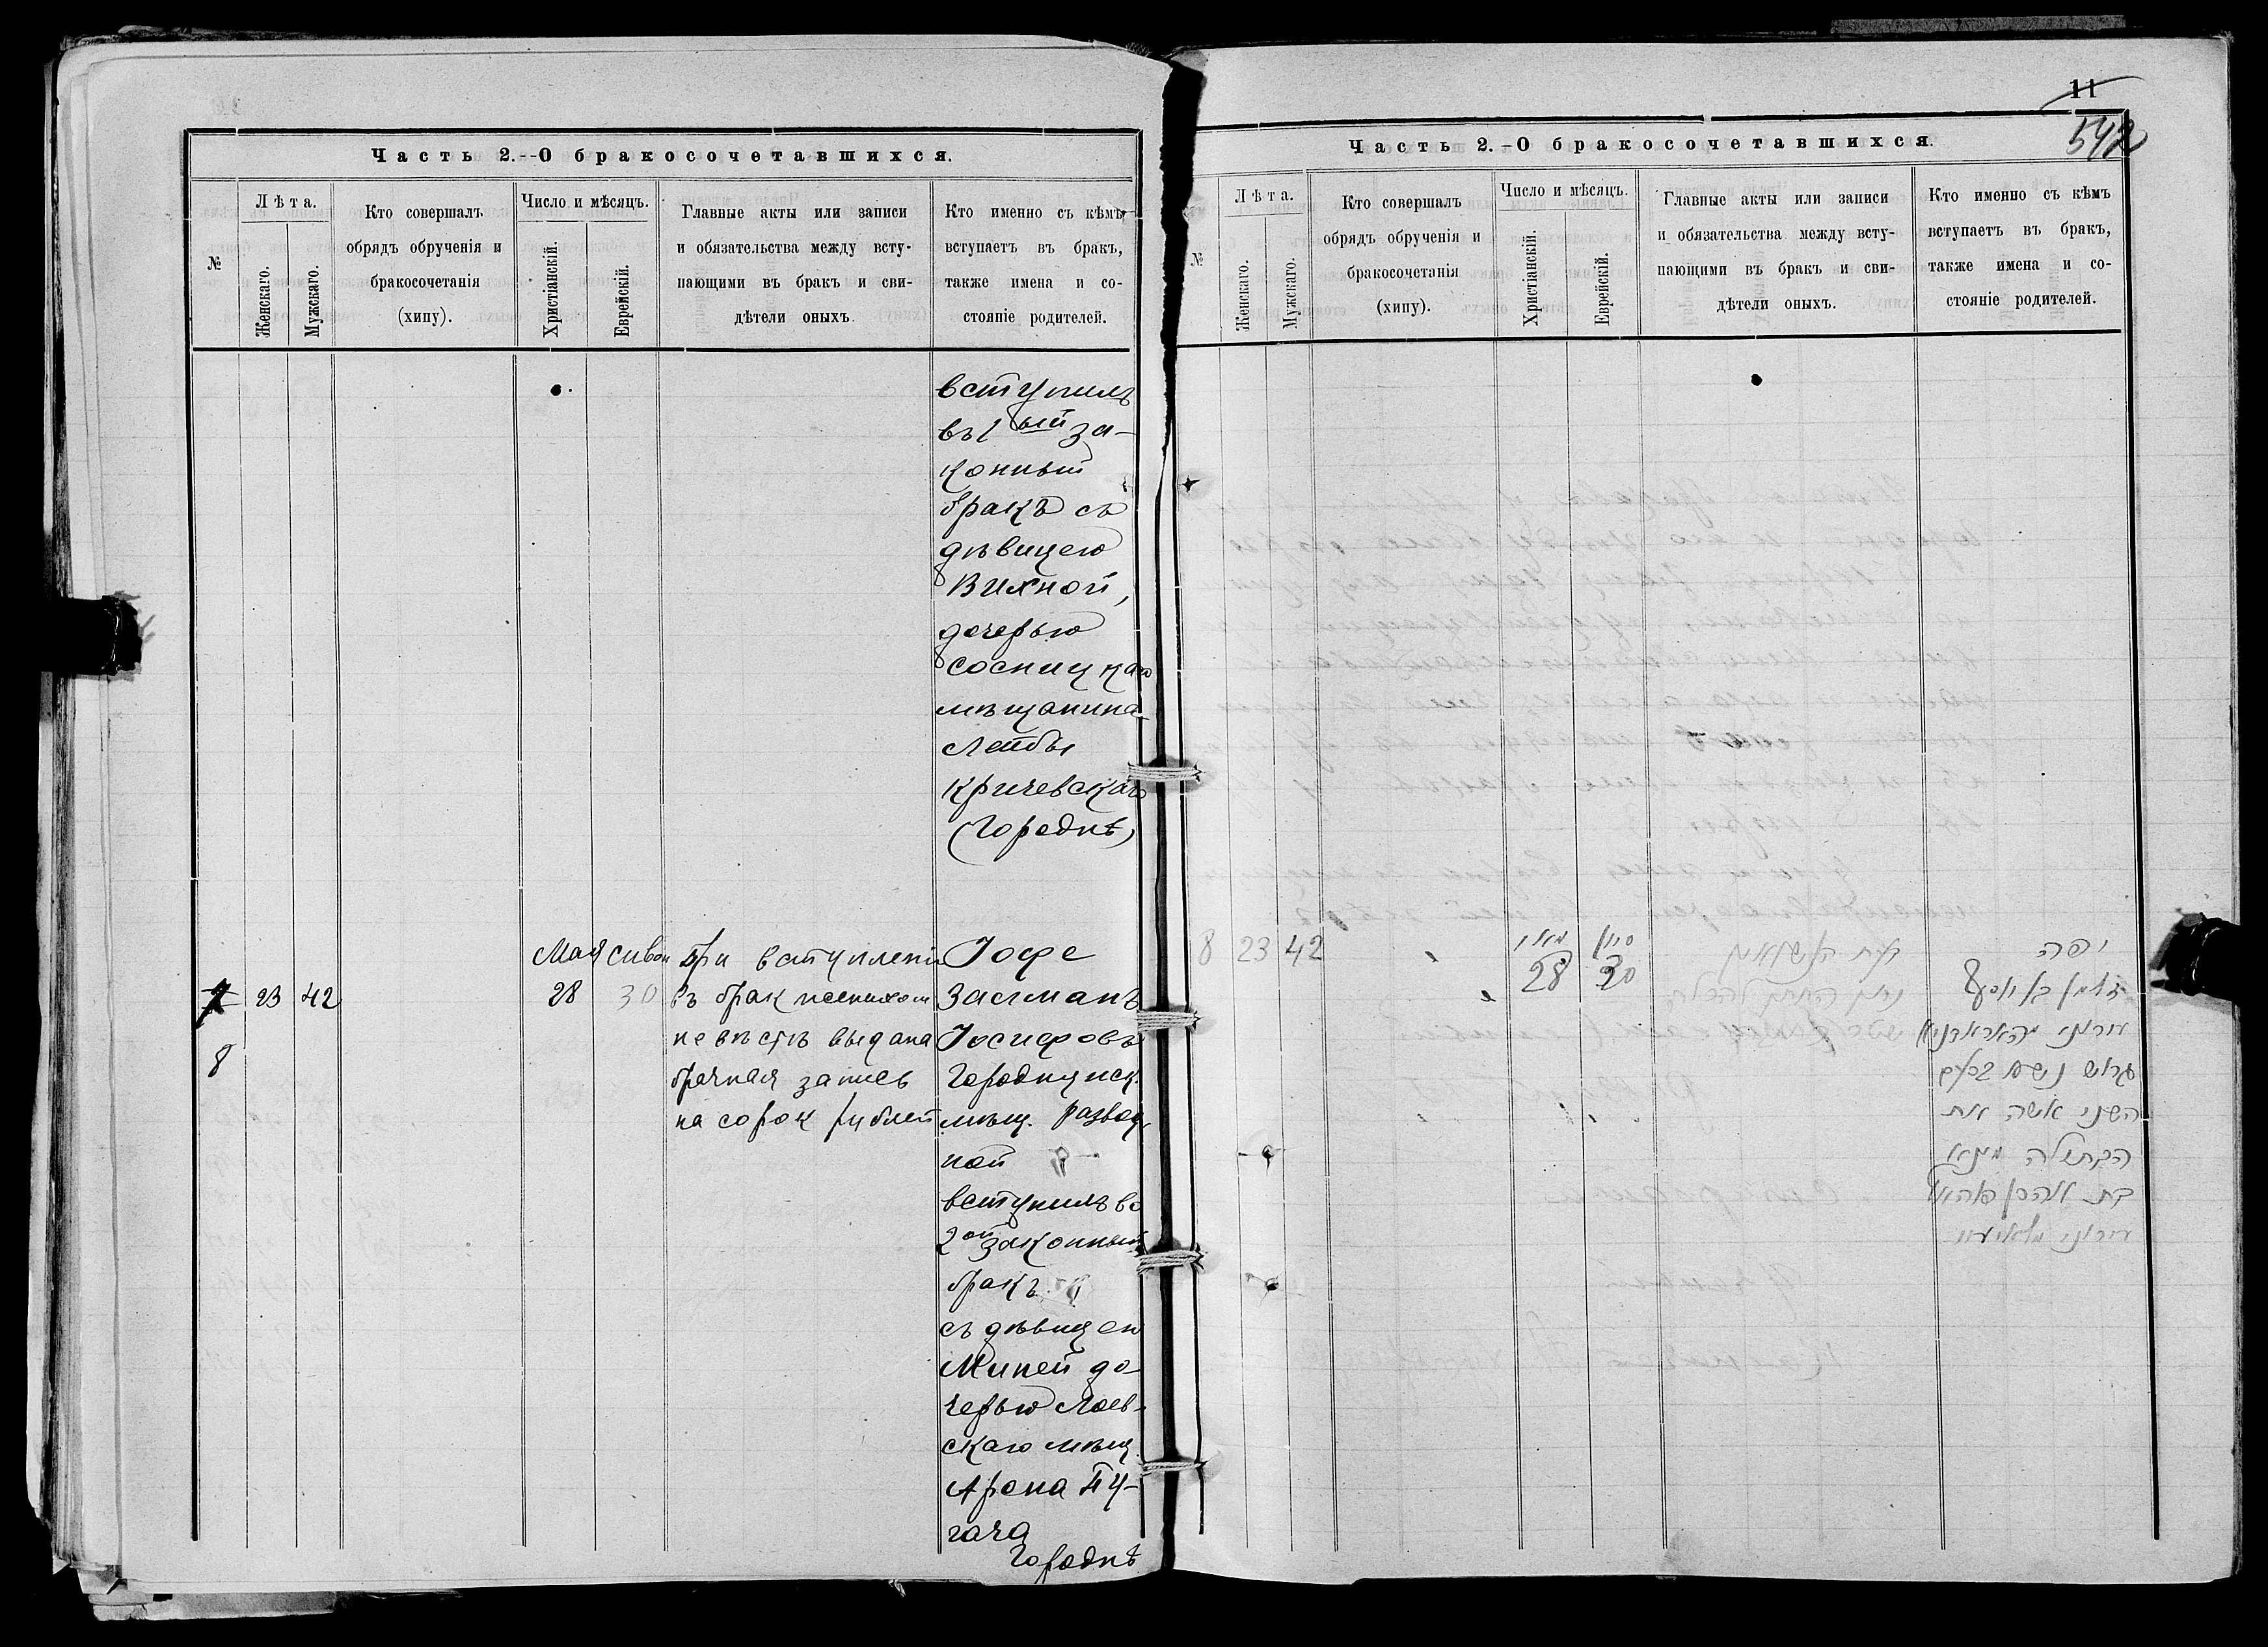 Часть 2.--О бракосочетавшихся.
№
Лѣта.
Женскаго.
Мужскаго.
Кто совершалъ
обрядъ обрученія и
бракосочетанія
(хипу).
Число и мѣсяцъ.
Христіанскій.
Еврейскій.
Главные акты или записи
и обязательства между всту-
пающими въ бракъ и сви-
дѣтели оныхъ.
Кто именно съ кѣмъ
вступаетъ въ бракъ,
также имена и со-
стояніе родителей.
вступилъ
въ 1 ый за-
конный
бракъ съ
дѣвицею
Вихной,
дочерью
Сосницкаго
мѣщанина
Лейбы
Кричевскаго
(Городнѣ)
7
8
23
42
Мая
28
Сивон
30
При вступлени
въ брак
невѣстѣ выдана
брачная запись
на сорок рублей
Іофе
Залманъ
Іосифовъ
Городницск.
мѣщ. развод
ной
вступилъ во
2ой законный
бракъ
съ дѣвицей
Миней до-
черью Лоев-
скаго мѣщ.
Арона Пу-
гача
Городнѣ
11
542
Часть 2.-О бракосочетавшихся.
№
Лѣта.
Женскаго.
Мужскаго.
Кто совершалъ
обрядъ обрученія и
бракосочетанія
(хипу).
Число и мѣсяцъ.
Христіанскій.
Еврейскій.
Главные акты или записи
и обязательства между всту-
пающими въ бракъ и сви-
дѣтели оныхъ.
Кто именно съ кѣмъ
вступаетъ въ бракъ,
также имена и со-
стояніе родителей.
8
23
42
מאי
28
סיון
30
בעת הנשואין
נתן החתן להכלה
שטר
יפה
זלמן בן יוסף
עירוני
גרוש נשא בפעם
השני אשה את
הבתולה מינא
בת אהרן
עירוני